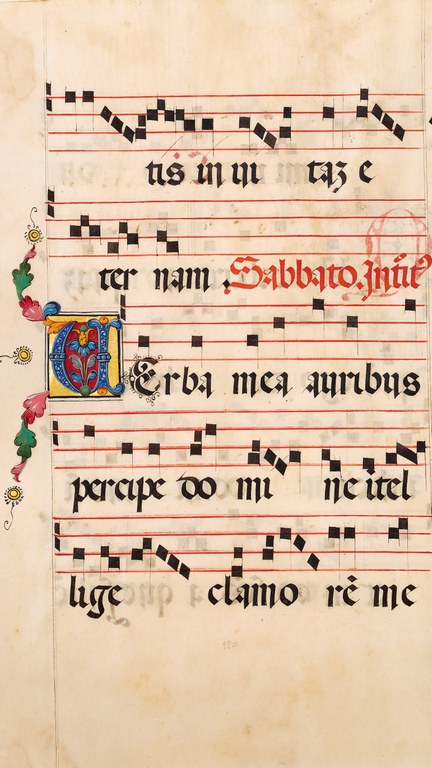 tis in ui taꝫ e
ter nam. Sabbato. Intit̃
VErba mea auribus
percipe do mi ne ĩtel
lige clamo rẽ me